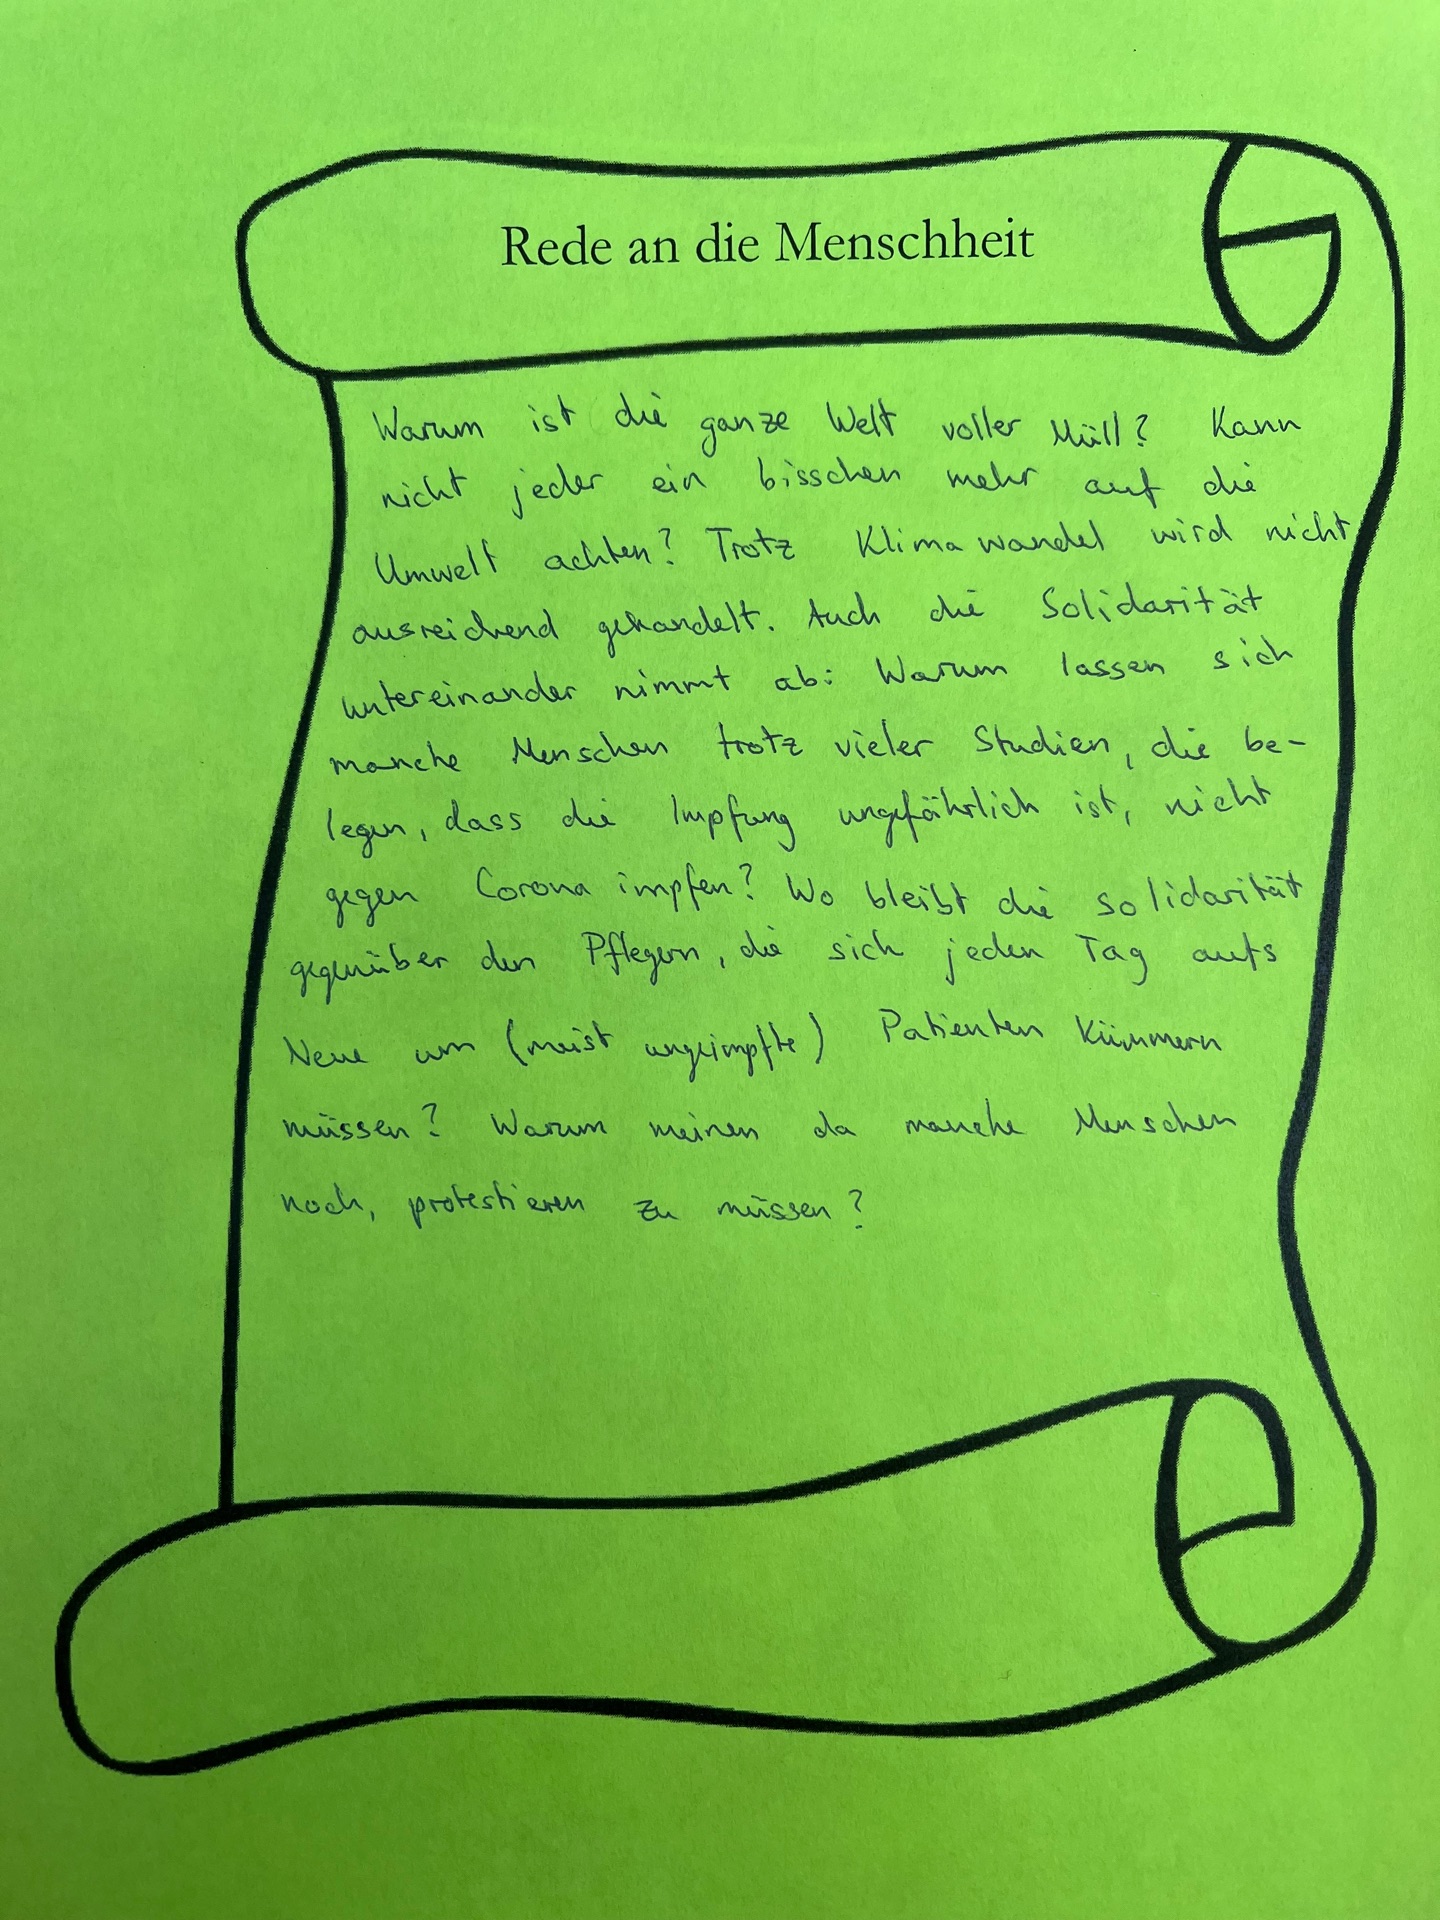 Rede an die Menschheit
Warum ist die ganze Welt voller Müll? Kann
nicht jeder ein bisschen mehr auf die
Umwelt achten? Trotz Klimawandel wird nicht
ausreichend gehandelt. Auch die Solidarität
untereinander nimmt ab: Warum lassen sich
manche Menschen trotz vieler Studien, die be-
legen, dass die Impfung ungefährlich ist, nicht
gegen Corona impfen? Wo bleibt die solidarität
gegenüber den Pflegern, die sich jeden Tag aufs
Neue um (meist ungeimpfte) Patienten kümmern
müssen? Warum meinen da manche Menschen
noch, protestieren zu müssen?